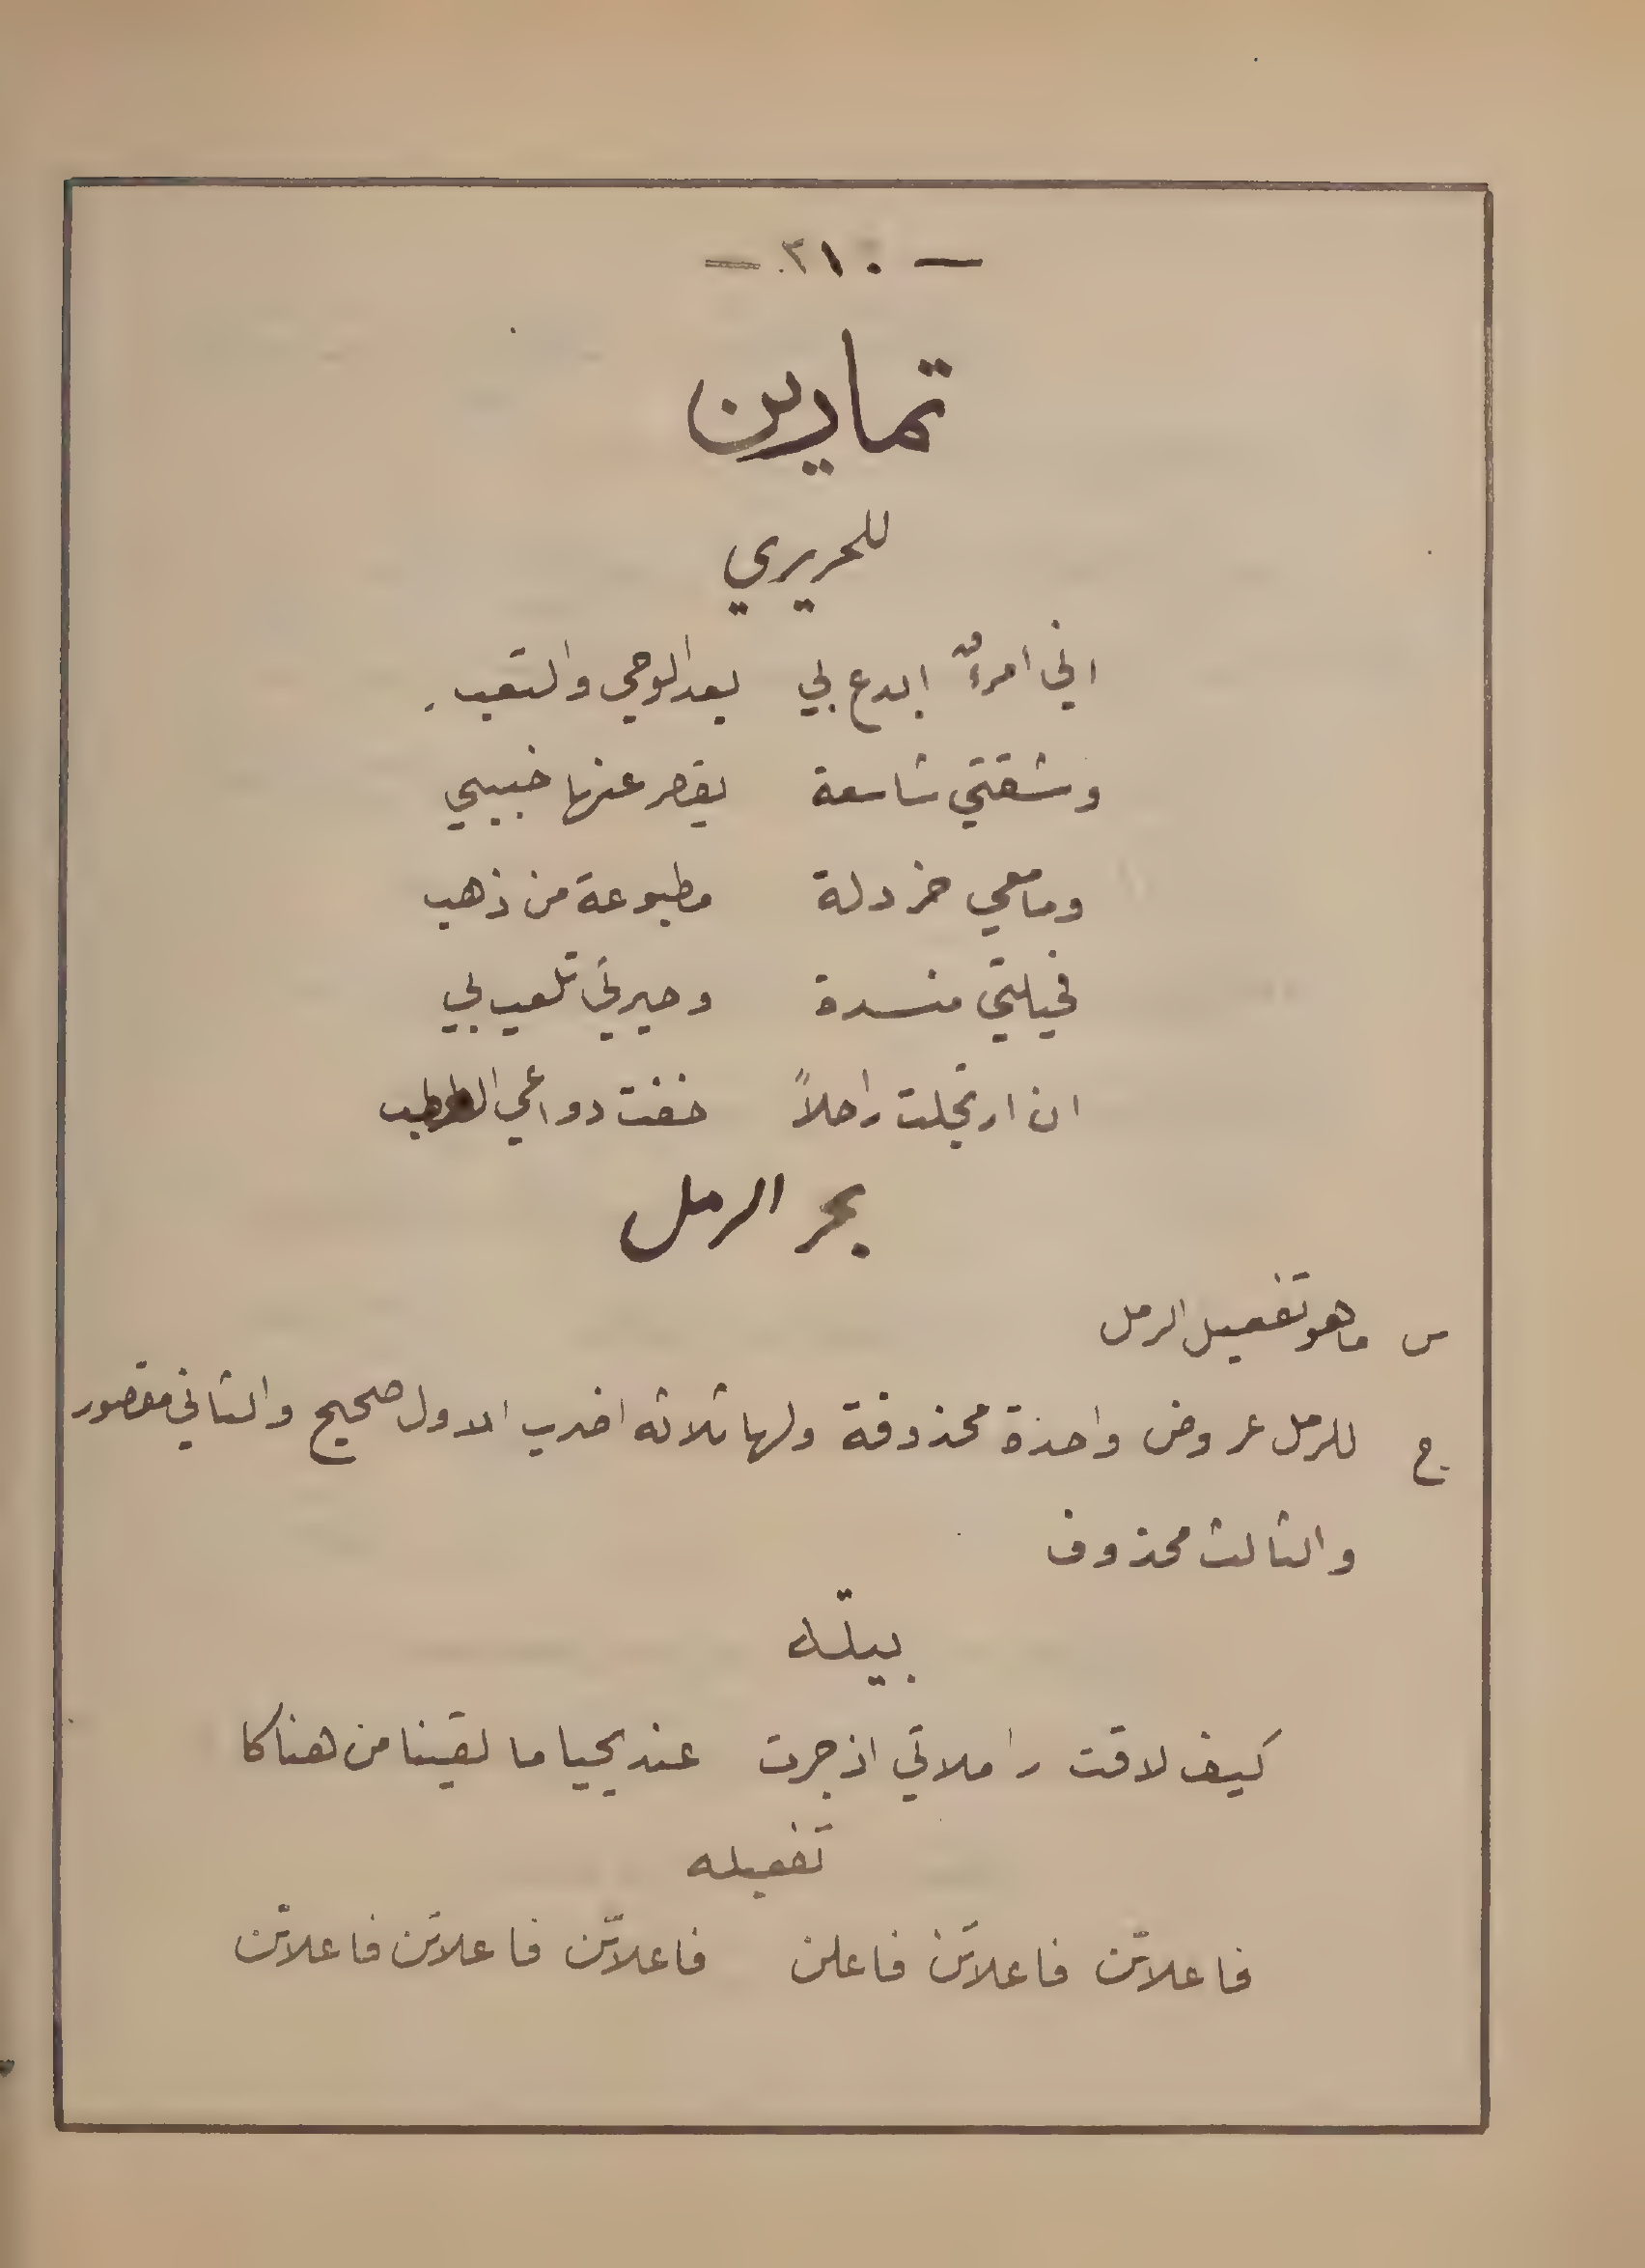 — ٣١٠ —
تمارين
للحريري
اني امرءٌ ابدع بي    بعد الوجي والتعب
وشقتي شاسعة    يقصر عنها خببي
وما معي خردلة    مطبوعة من ذهب
فحيلتي منسدة    وحيرتي تلعب بي
ان ارتجلت راجلاً    خفت دواعي العطب
بحر الرمل
س    ما هو تفعيل الرمل
ج    للرمل عروض واحدة محذوفة ولها ثلاثه اضرب الاول صحيح والثاني مقصور
والثالث محذوف
بيته
كيف لاقت راملاتي اذ جرت    عند يحيا ما لقينا من هناكا
تفعيله
فاعلاتن فاعلاتن فاعلن    فاعلاتن فاعلاتن فاعلاتن